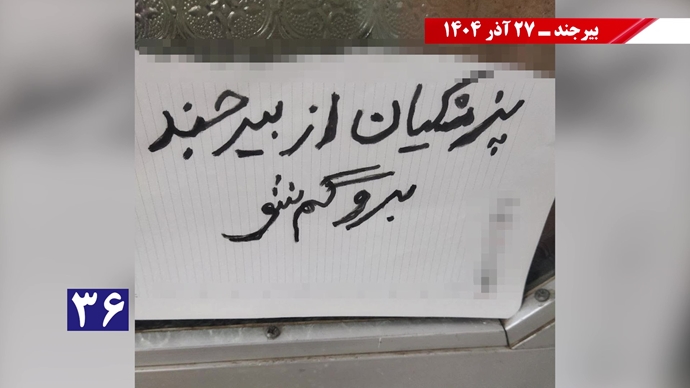 بیرجند ـ ۲۷ آذر ۱۴۰۴
پزشکیان از بیرجند
برو گم شو
۳۶